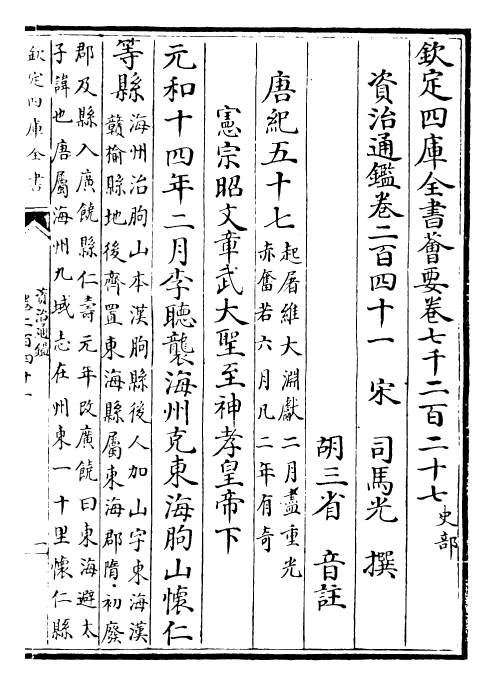 欽定四庫全書薈要卷七千二百二十七史部
資治通鑑卷二百四十一 宋 司馬光 撰
胡三省 音註
唐紀五十七起屠維大淵獻二月盡重光
赤奮若六月凡二年有奇
憲宗昭文章武大聖至神孝皇帝下
元和十四年二月李聽襲海州克東海朐山懷仁
等縣海州治朐山本漢朐縣後人加山字東海漢
贛榆縣地後齊置東海縣屬東海郡隋初廢
郡及縣入廣饒縣仁壽元年改廣饒曰東海避太
子諱也唐屬海州九域志在州東一十里懷仁縣
欽定四庫全書
資治通鑑
卷二百四十一
一